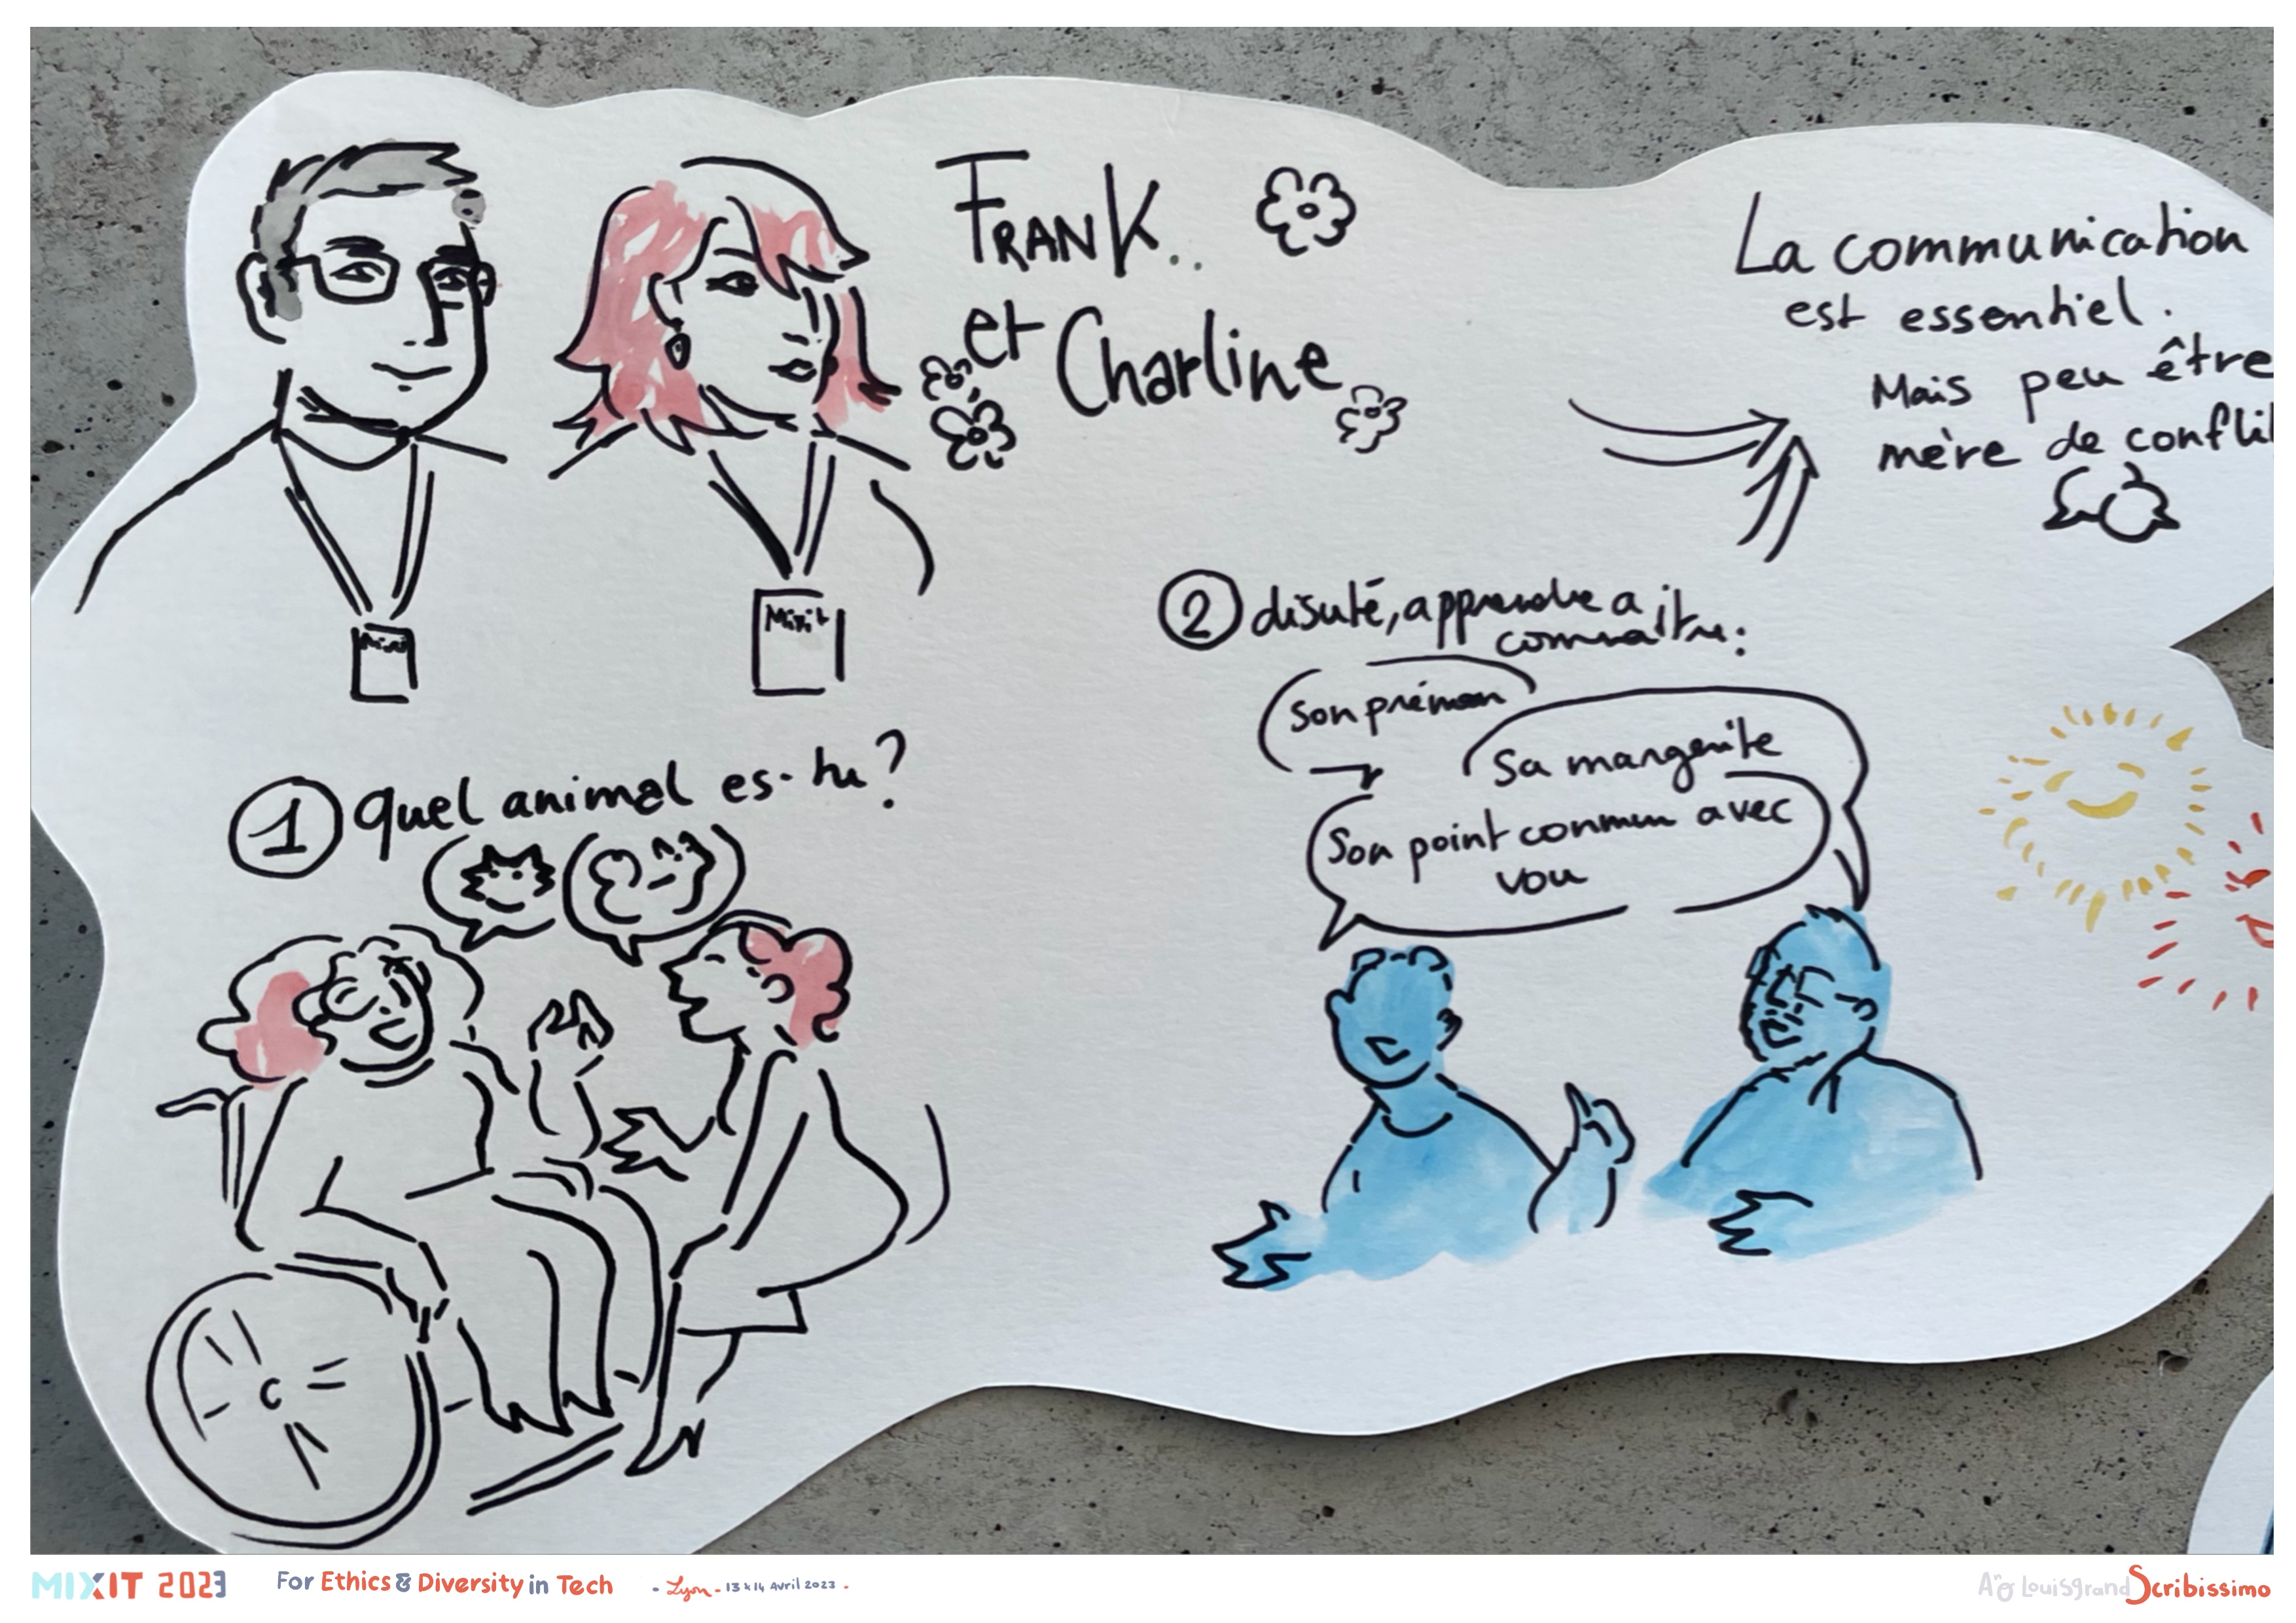 FRANK..
et Charline
La communication
est essentiel.
Mais peu être
mère de conflit
Mixit
Mixit
② disuté, apprendre a
connaitre:
son prénom
Sa margerite
Son point commun avec
vou
① quel animal es-tu?
MIXIT 2023
For Ethics & Diversity in Tech
- Lyon - 13 & 14 Avril 2023 -
Louisgrand Scribissimo